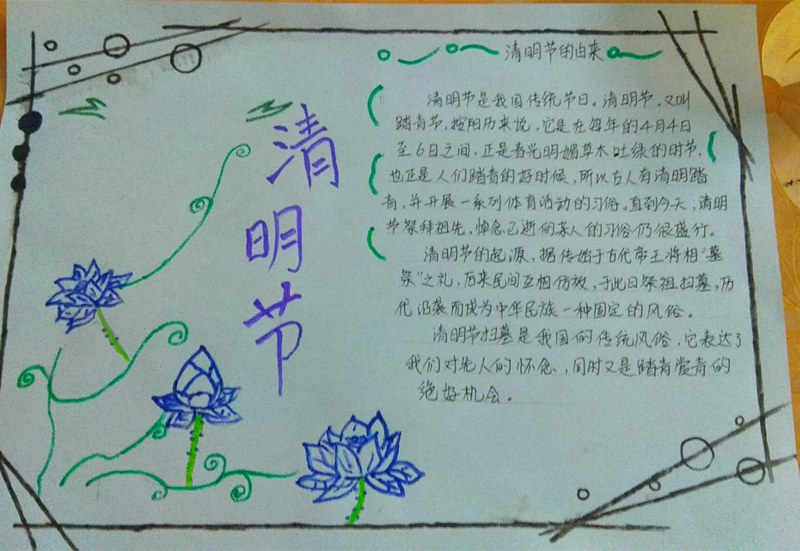 清明节
清明节的由来
清明节是我国传统节日。清明节，又叫
踏青节，按阳历来说，它是在每年的4月4日
至6日之间，正是春光明媚草木吐绿的时节，
也正是人们踏青的好时候，所以古人有清明踏
青，并开展一系列体育活动的习俗。直到今天，清明
节祭拜祖先，悼念已逝的亲人的习俗仍很盛行。
清明节的起源，据传始于古代帝王将相“墓
祭”之礼，历来民间互相仿效，于此日祭祖扫墓，历
代沿袭而成为中华民族一种固定的风俗。
清明节扫墓是我国的传统风俗，它表达了
我们对先人的怀念，同时又是踏青赏青的
绝好机会。